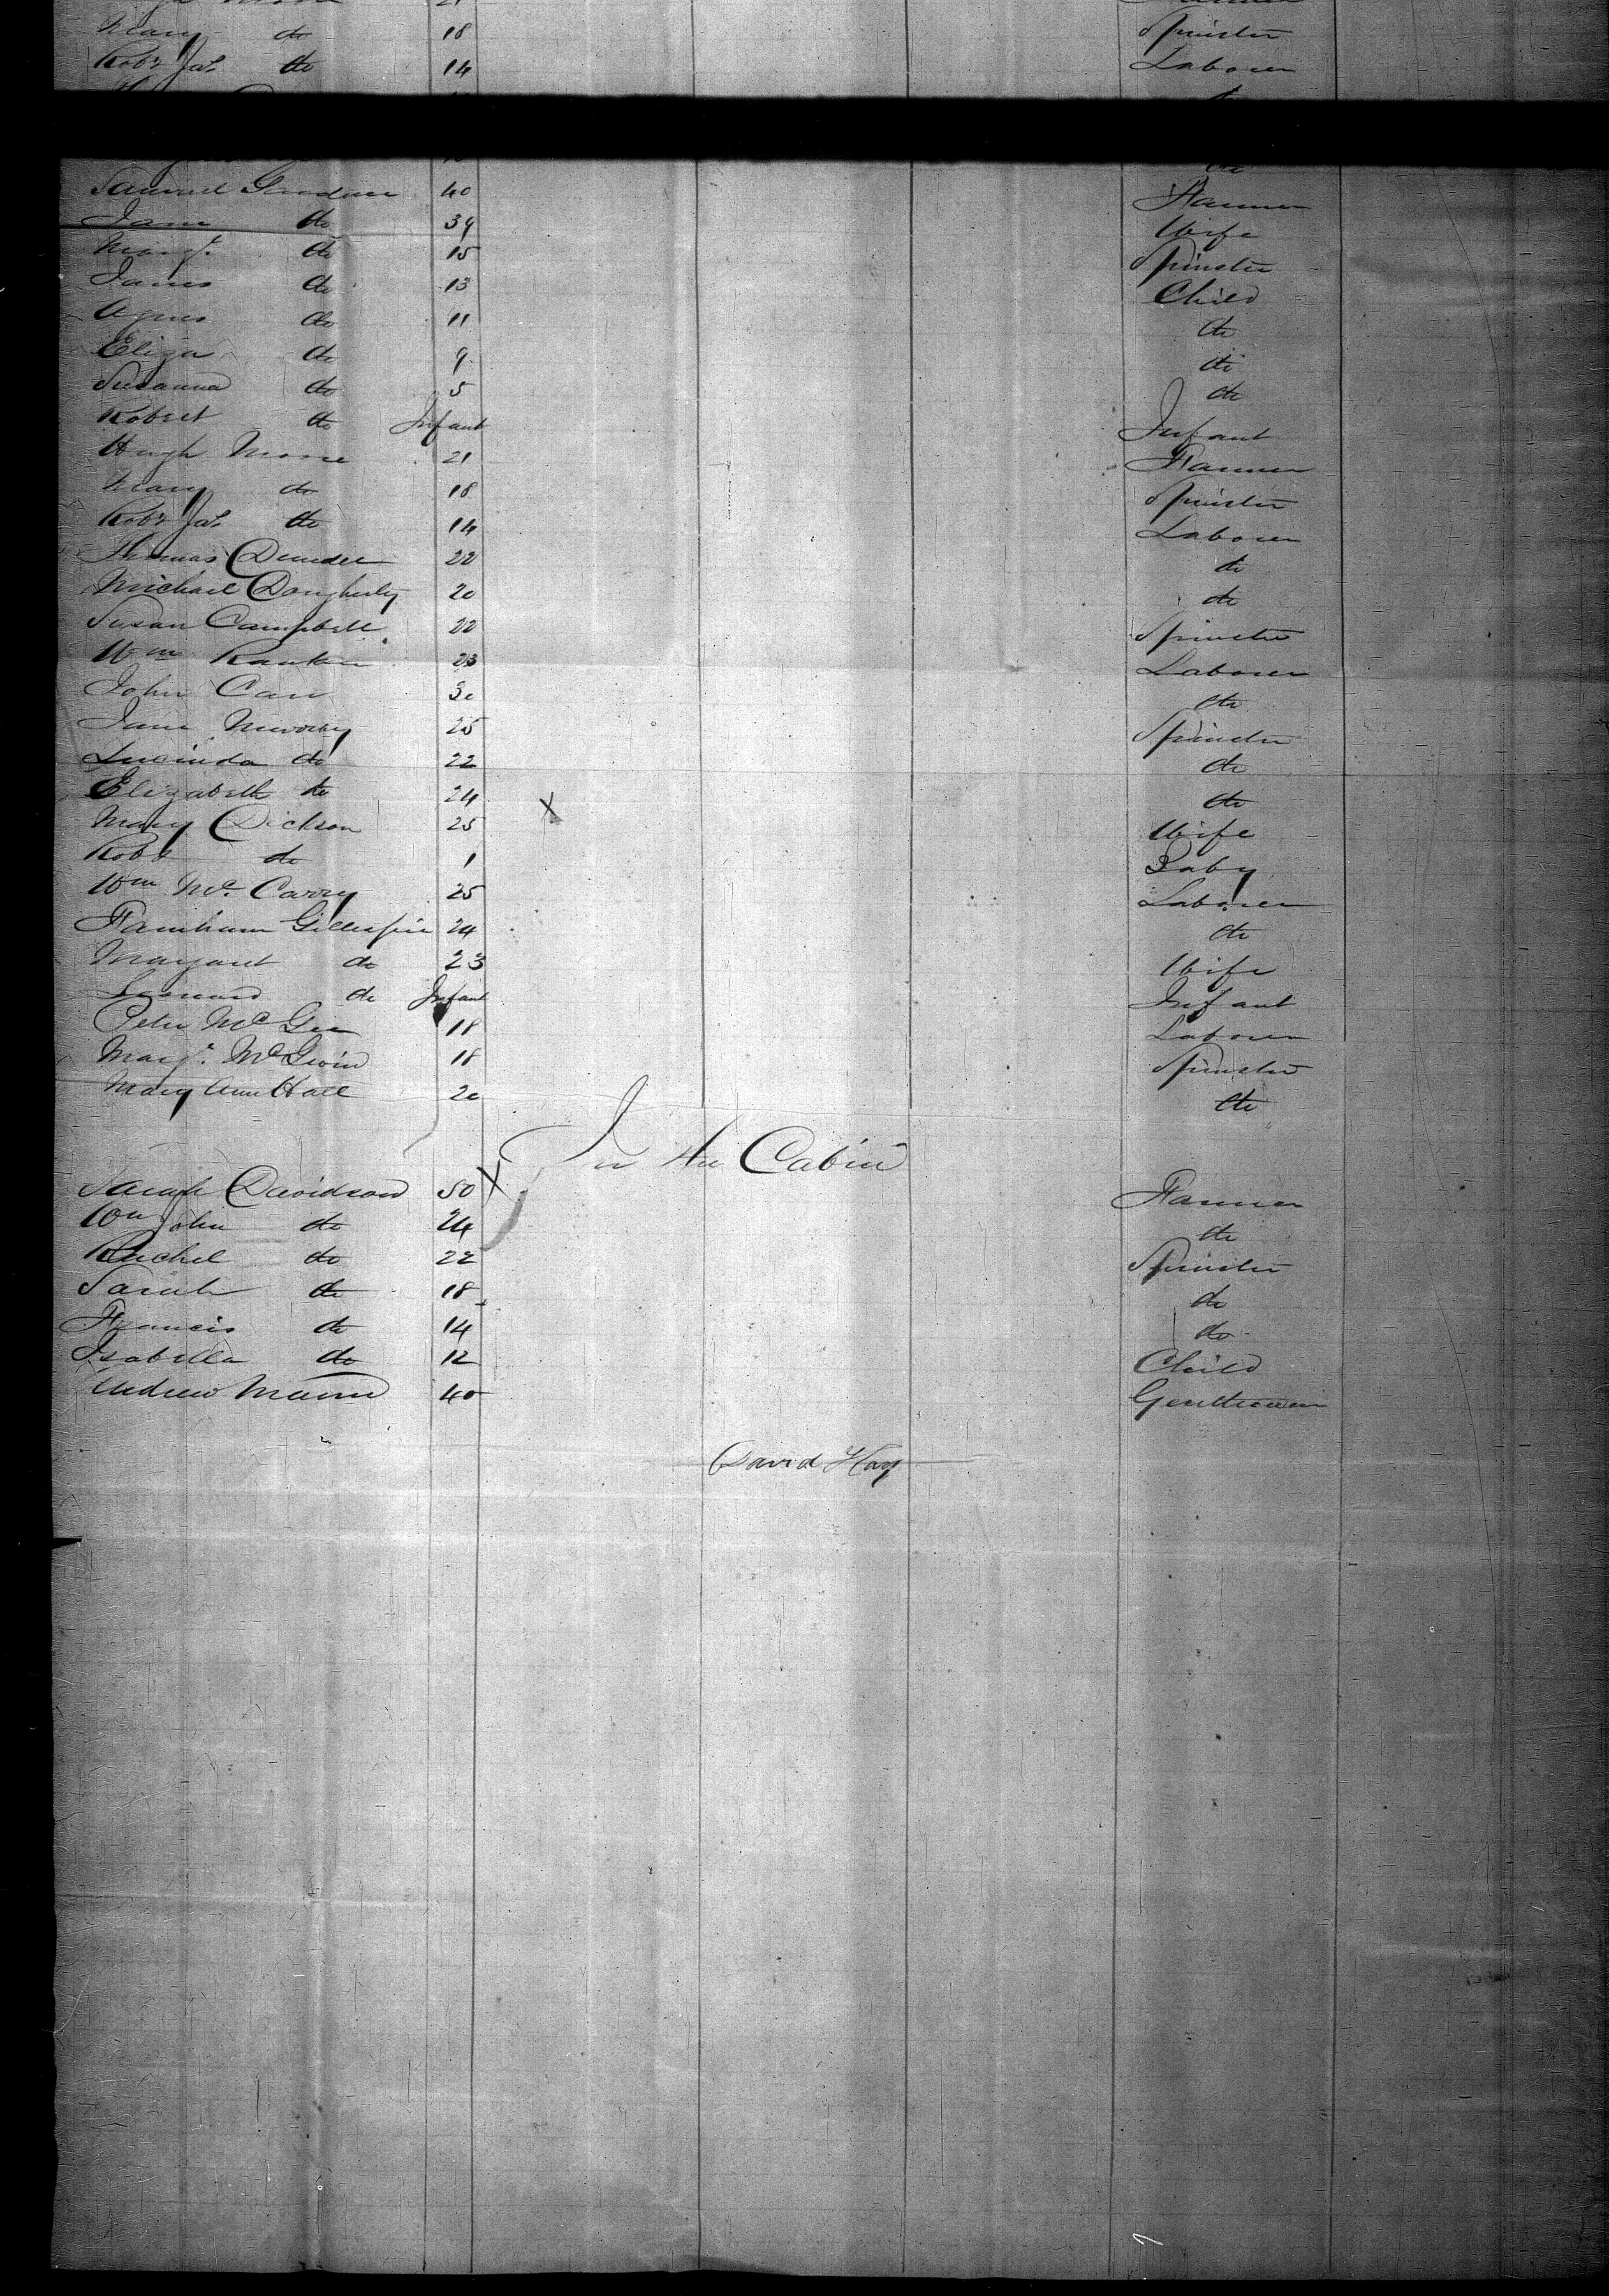 Mary do 18 Spinster
Robt Jas do 14 Laborer
do
Samuel 40 Farmer
Jane do 39 Wife
Margt. do 15 Spinster
James do 13 Child
Agnes do 11 do
Eliza do 9 do
Susanna do 5 do
Robert do Infant Infant
Hugh Moore 21 Farmer
Mary do 18 Spinster
Robt Jas do 14 Laborer
Thomas Dundee 22 do
Michael Dougherty 20 do
Susan Campbell 22 Spinster
Wm Rankin 23 Laborer
John Carr 30 do
Jane 25 Spinster
Lucinda do 22 do
Elizabeth do 24 do
Mary Dickson 25 Wife
Robt do 1 Baby
Wm Mc Carry 25 Laborer
Gillespie 24 do
Margaret do 23 Wife
do Infant Infant
Peter McGee 18 Laborer
Margt. 18 Spinster
Mary Ann Hall 20 do
In the Cabin
Sarah Davidson 50 Farmer
Wm John do 24 do
Rachel do 22 Spinster
Sarah do 18 do
Francis do 14 do
Isabella do 12 Child
Andrew Mann 40 Gentleman
David Hay